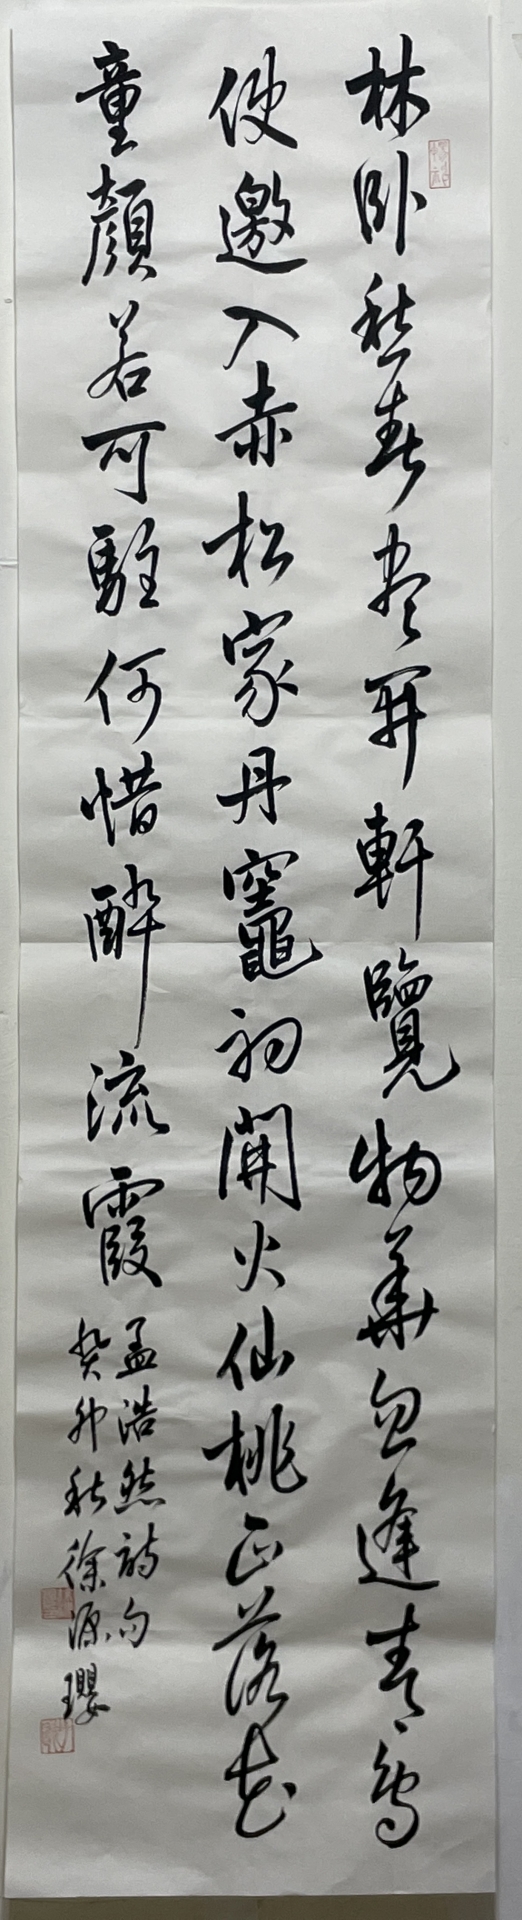 林卧愁春尽开軒覽物華忽逢青鸟
使邀入赤松家丹竈初開火仙桃正落花
童顔若可駐何惜醉流霞
孟浩然詩句
癸卯秋徐源瓔